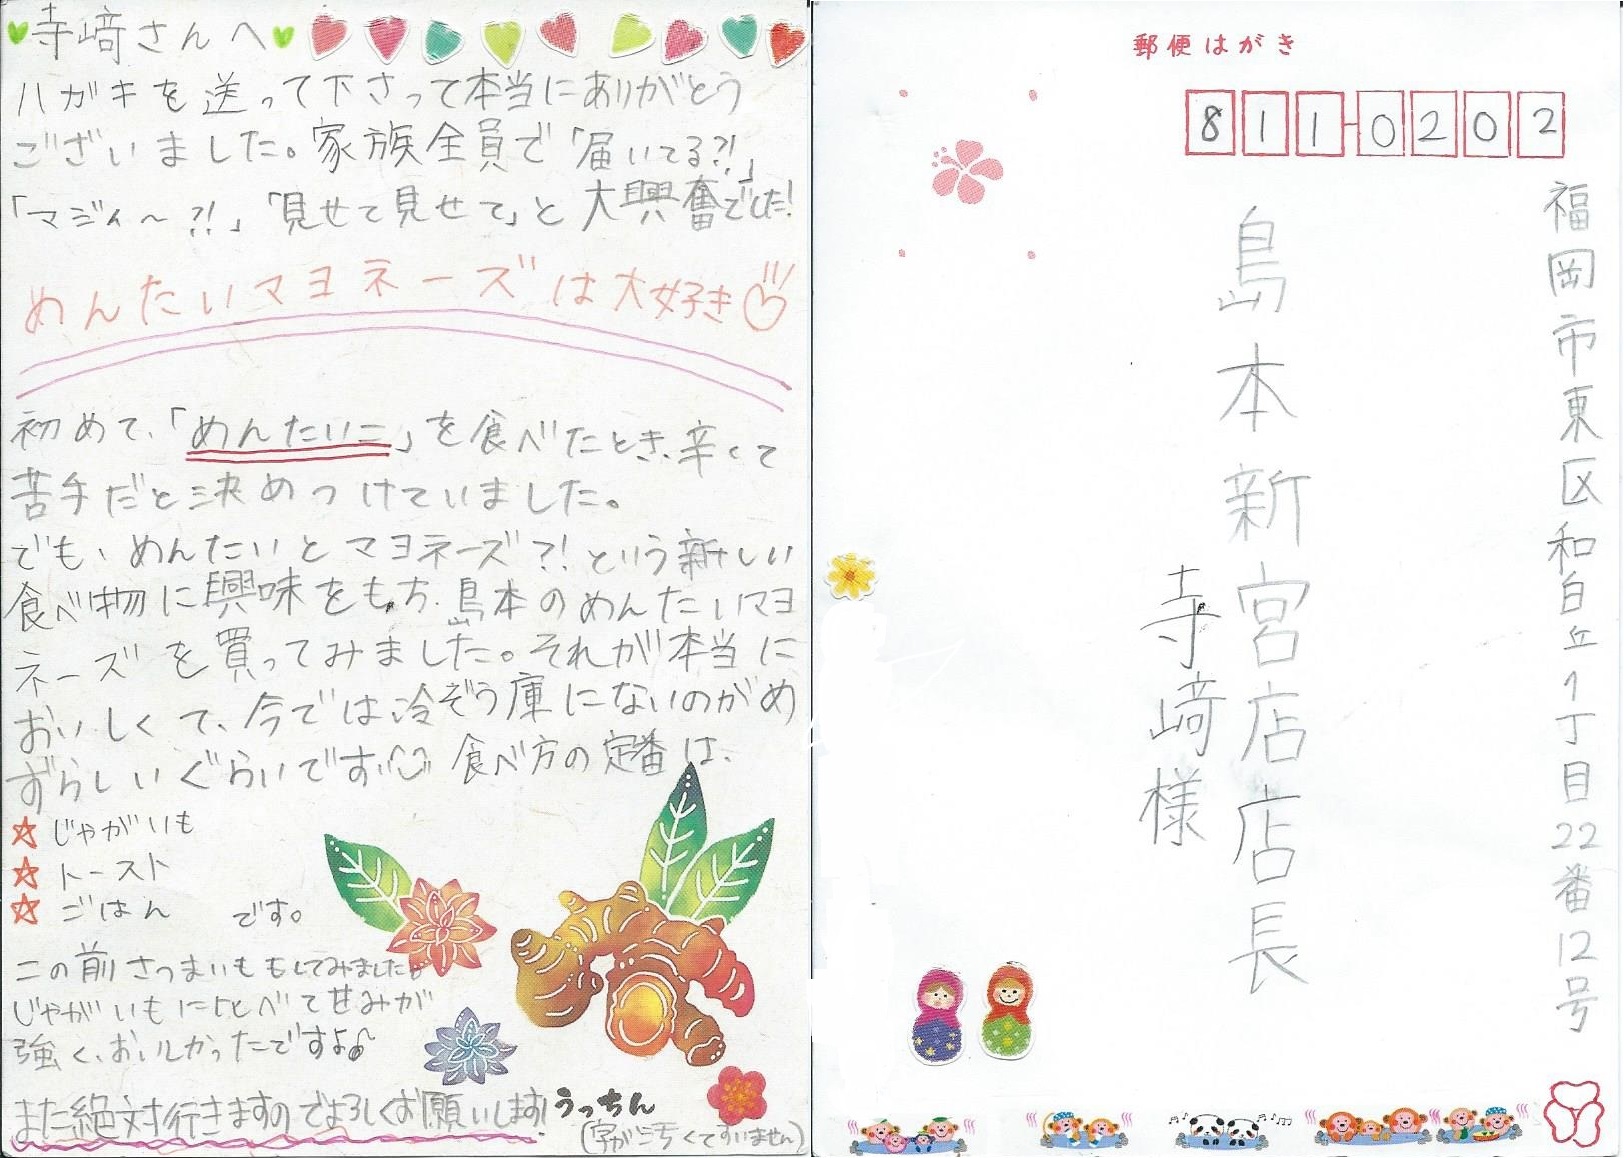 寺﨑さんへ
ハガキを送って下さって本当にありがとう
ございました。家族全員で「届いてる?!」
「マジィ〜?!」「見せて見せて」と大興奮でした!
めんたいマヨネーズは大好き
初めて、「めんたいこ」を食べたとき、辛くて
苦手だと決めつけていました。
でも、めんたいとマヨネーズ?!という新しい
食べ物に興味をもち、島本のめんたいマヨ
ネーズを買ってみました。それが本当に
おいしくて、今では冷ぞう庫にないのがめ
ずらしいぐらいです。食べ方の定番は、
☆じゃがいも
☆トースト
☆ごはん です。
この前さつまいももしてみました。
じゃがいもに比べて甘みが
強く、おいしかったですよ♪
また絶対行きますのでよろしくお願いします!
うっちん
(字がこちくてすいません)
郵便はがき
811-0202
福岡市東区和白丘1丁目22番12号
島本新宮店店長
寺﨑様